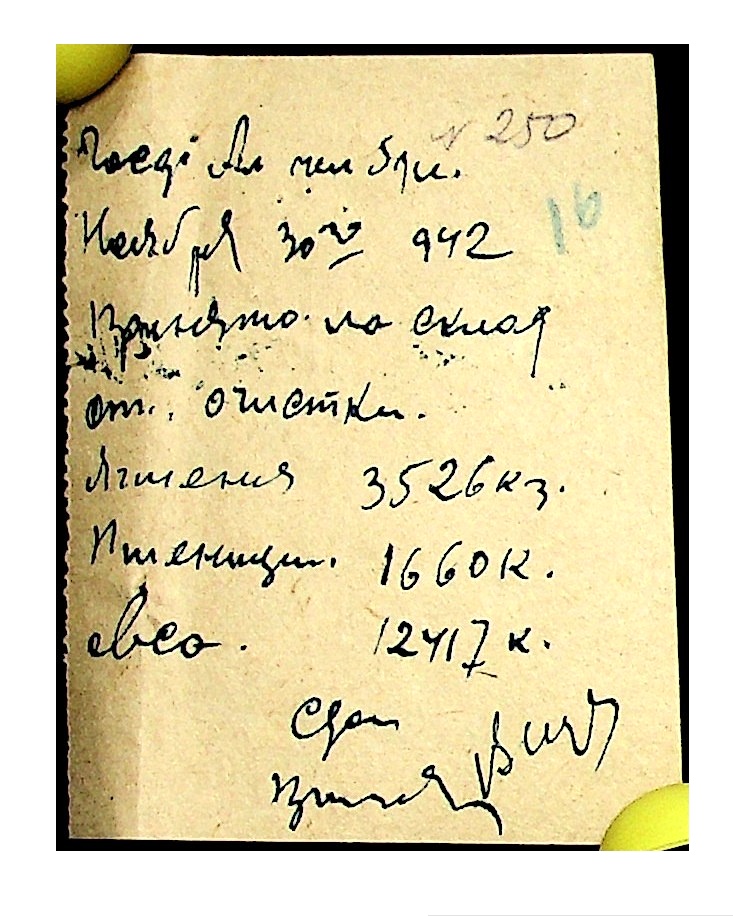 N 250
16
Ноября 30го 942
Принято на склад
от. очистки.
Ячменя 3526 кг.
Пшеницы. 1660 к.
овса. 12417 к.
Сдал
Принял